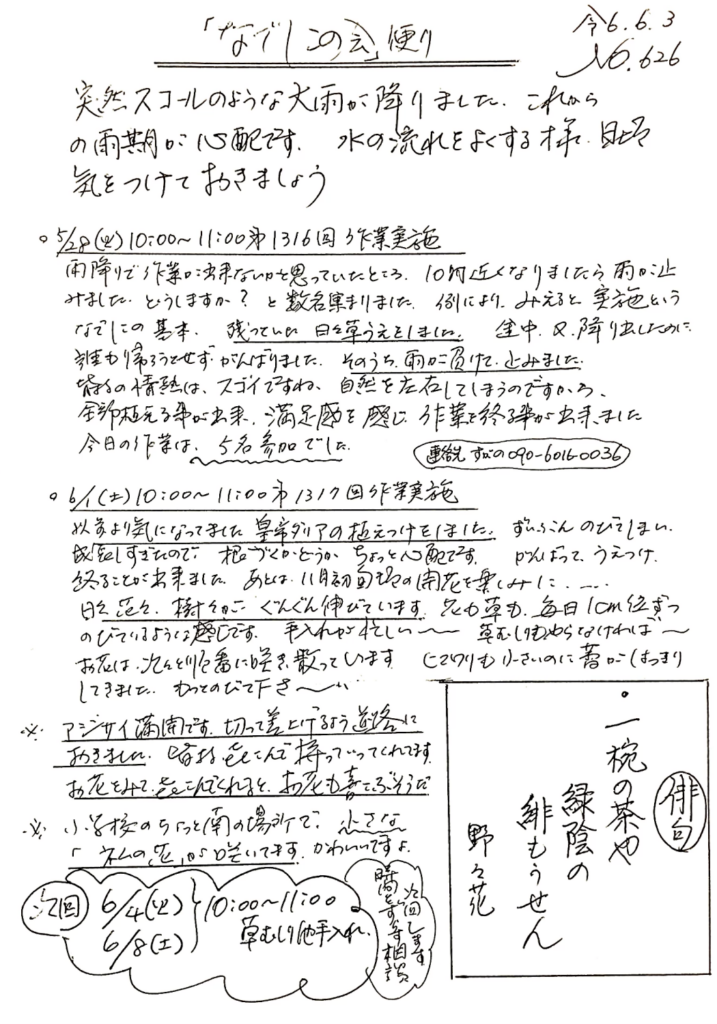 「なでしこの会」便り
令6.6.3
No.626
突然スコールのような大雨が降りました。これから
の雨期が心配です。水の流れをよくする様、日当
気をつけておきましょう
○5/28(火)10:00〜11:00第1316回作業実施
雨降りで作業が出来ないかと思っていたところ、10時近くなりましたら雨が止
みました。どうしますか?と数名集まりました。例により、みえると実施という
なでしこの基本、残っていた日々草うえをしました。途中、又、降り出したのに
誰も帰ろうとせずがんばりました。そのうち、雨が負けて、止みました。
皆様の情熱は、スゴイですね。自然を左右してしまうのですから、
全部植える事が出来、満足感を感じ、作業を終る事が出来ました
今日の作業は、5名参加でした
連絡先 すがの090-6016-0036
○6/1(土)10:00〜11:00第1317回作業実施
以前より気になってました皇帝ダリアの植えつけをしました。ずいぶんのびてしまい、
成長しすぎたので根づくかどうかちょっと心配です。がんばって、うえつけ、
終ることが出来ました。あとは、11月初旬の開花を楽しみに……
日々花々、樹々がぐんぐん伸びています。花も草も、毎日1cm位ずつ
のびているような感じです。手入れが忙しい〜〜草むしりもやらなければ〜
お花は、次々と順番に咲き、散っています
小さいのに蕾がはっきり
してきました。もっとのびて下さ〜い
※アジサイ満開です。切って差上げるよう道路に
おきました。皆様喜こんで持っていってくれてます。
お花をみて喜こんでくれると、お花も喜こぶそうだ
※小学校のちょっと南の場所で、小さな
「ネムの花」が咲いてます。かわいいですよ。
次回
6/4(火)
6/8(土)
10:00〜11:00
草むしり他手入れ
俳句
・一椀の茶や
緑陰の
緋もうせん
野々花